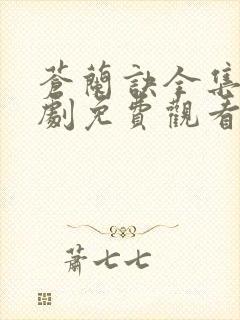 蒼蘭訣全集
劇免費觀看
蕭七七